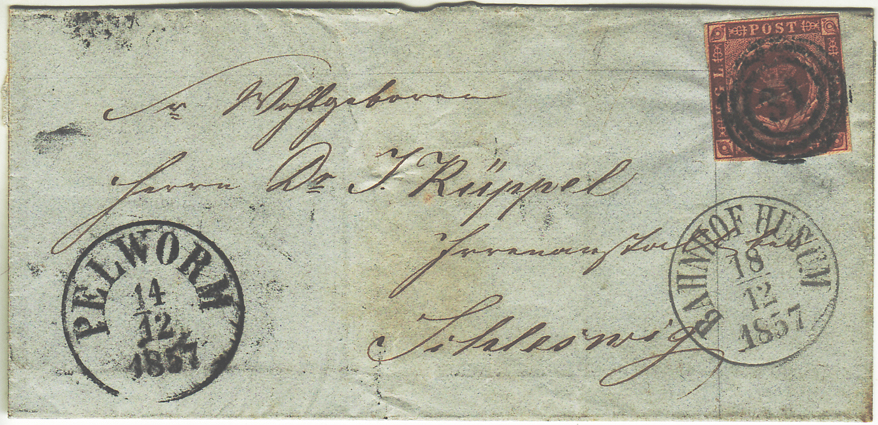 POST
Sr Wohlgeboren
Herrn Dr J. Rüppel
Irrenanstalt bei
Schleswig
PELWORM
14
12
1857
BAHNHOF HUSUM
18
12
1857